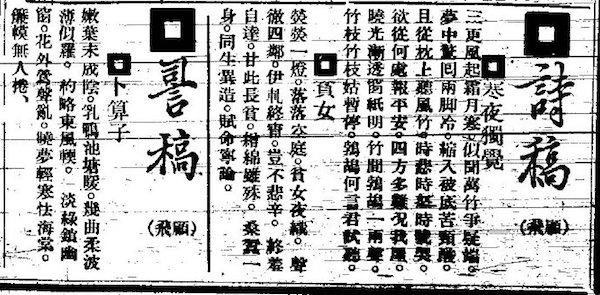 詩稿
(顧飛)
寒夜獨覺
三更風起霜月寒。似聞萬竹爭疑端。
夢中驚回兩脚冷。縮入被底苦酸。
且從枕上聽風竹。時悲時怒時號哭。
欲從何處報平安。四方多難况我屋。
曉光漸透窗紙明。竹間鵓鴣一兩聲。
竹枝竹枝姑暫停。鵓鴣何言君試聽。
貧女
熒熒一燈。落落空庭。貧女夜織。聲
徹四鄰。伊軋終宵。豈不悲辛。
自達。甘此長貧。綿雖殊。桑蠶一
身。同生異造。賦命寧論。
詞稿
(顧飛)
卜算子
嫩葉未成陰。乳鴨池塘暖。幾曲柔波
薄似羅。約略東風輭。淡綠鎖幽
窗。花外鶯聲亂。曉夢輕寒怯海棠。
簾幙無人捲。